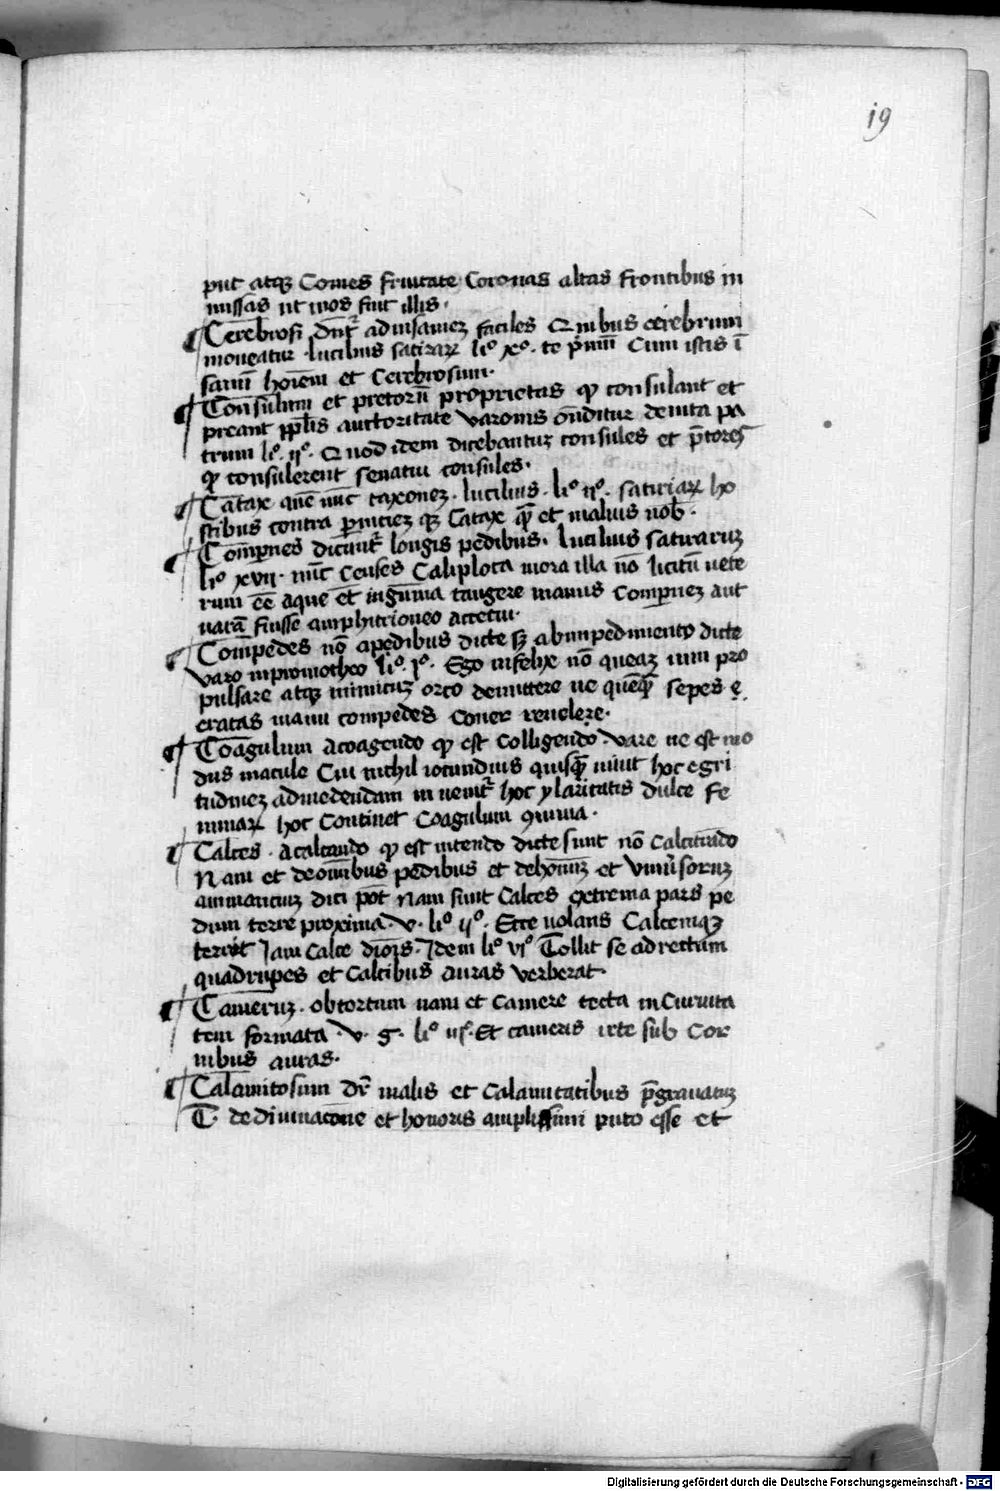 19
put atqꝫ Comes fruitate Coronas altas frontibus in
missas ut mos fiut illis.
¶ Cerebrosi dn̄tr̄ ad insaniez faciles Quibus cerebrum
moueatur. lucilius satirarꝝ li⁰ xx⁰. te pͥmū Cum istis ī
sanū hoīem et Cerebrosum.
¶ Consulum et pretorū proprietas ꝙ consulant et
preant pp̄lis auctoritate varonis on̄ditur de uita pa
trum li⁰. ij⁰. Quod idem dicebantuꝫ consules et p̄tores
ꝙ consulerent senatui consules.
¶ Catax quē nūc taxonez. lucilius. li⁰ ij⁰. satirarꝝ ho
stibus contra pernitiez qꝫ Catax qͣꝫ et maluis nob̄.
¶ Compernes dicunt̄ longis pedibus. lucilius satiraruꝫ
li⁰ xvij. nūc Censes Caliplota mora illa nō licitū uete
rum eē aque et̄ inguina tangere mamis Compernez aut
uarā fuisse amphitrioneo accetiu.
¶ Compedes nō a pedibus dicte sꝫ ab inpedimento dicte
varo in promotheo li⁰. j⁰. Ego infelix nō queaꝫ uim pro
pulsare atqꝫ inimicuꝫ orco demittere ne quēqͣꝫ sepes ę
cratas manu compedes Coner reuelere.
¶ Coagulum a coagendo ꝙ est Colligendo. vare ne est mo
dus macule Cui nichil iocundius quisqͣꝫ uiuit hoc egri
tudinez ad medendam in uenit̄ hoc ylaritatis dulce se
minarꝝ hoc Continet Coagulum ꝯuiuia.
¶ Calces. a calcando ꝙ est intendo dicte sunt nō Calcitrādo
Nam et de om̄ibus pedibus et de hom̄uꝫ et Vniūsoruꝫ
animantiuꝫ dici pōt Nam sunt Calces extrema pars pe
dum terre proxima. v. li⁰ ij⁰. Ecce uolans Calcemqꝫ
terrūt Jam calce dior̄s. Jdem li⁰ vj⁰ Tollit se ad rectum
quadrupes et Calcibus auras verberat.
¶ Cameruꝫ. obtortum nam et Camere tecta in Curuita
tem formata. v. g. li⁰ iij⁰. Et cameris irte sub Cor
nibus auras.
¶ Calamitosum dr̄ malis et Calamitatibus p̄grauatuꝫ
T. de diuinacōne et honoris amplissimi puto esse et
Digitalisierung gefördert durch die Deutsche Forschungsgemeinschaft - DFG